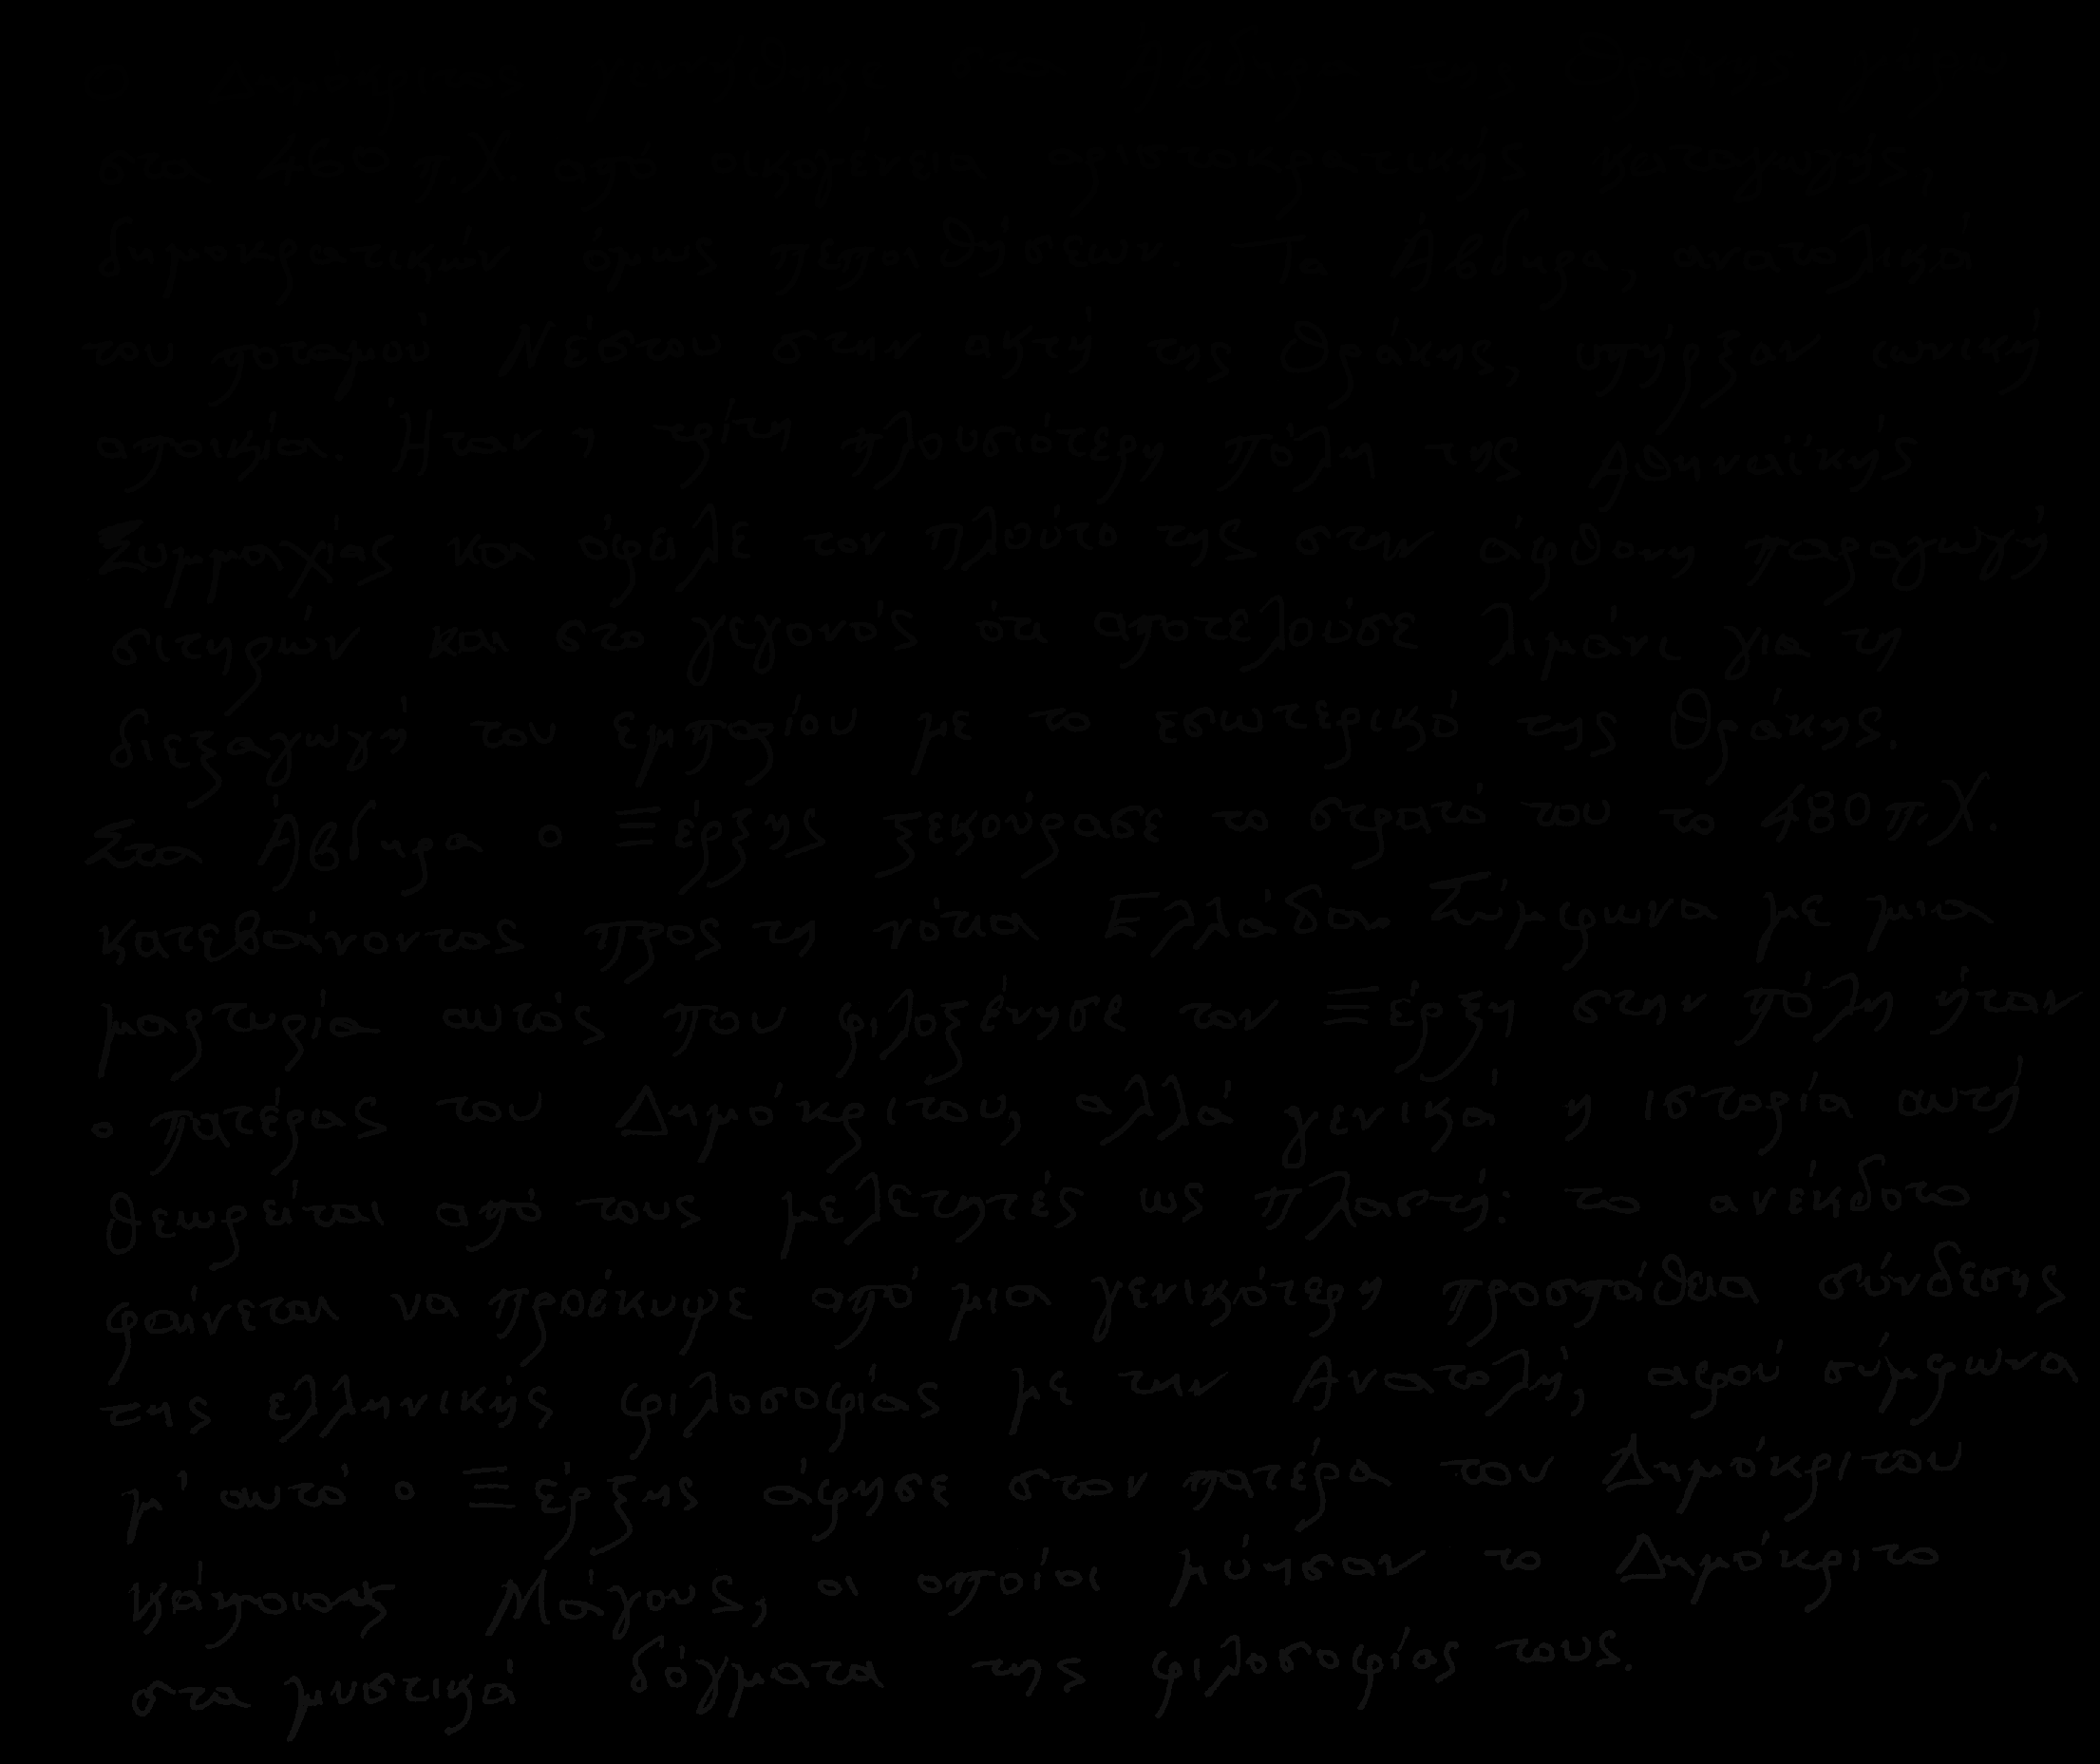 στα 460 π.Χ. από οικογένεια αριστοκρατικής καταγωγής,
δημοκρατικών όμως πεποιθήσεων. Τα Άβδηρα, ανατολικά
του ποταμού Νέστου στην ακτή της Θράκης, υπήρξαν ιωνική
αποικία. Ήταν η τρίτη πλουσιότερη πόλη της Αθηναϊκής
Συμμαχίας και όφειλε τον πλούτο της στην άφθονη παραγωγή
σιτηρών και στο γεγονός ότι αποτελούσε λιμάνι για τη
διεξαγωγή του εμπορίου με το εσωτερικό της Θράκης.
Στα Άβδηρα ο Ξέρξης ξεκούρασε το στρατό του το 480 π.Χ.
κατεβαίνοντας προς τη νότια Ελλάδα. Σύμφωνα με μια
μαρτυρία αυτός που φιλοξένησε τον Ξέρξη στην πόλη ήταν
ο πατέρας του Δημόκριτου, αλλά γενικά η ιστορία αυτή
θεωρείται από τους μελετητές ως πλαστή: το ανέκδοτο
φαίνεται να προέκυψε από μια γενικότερη προσπάθεια σύνδεσης
της ελληνικής φιλοσοφίας με την Ανατολή, αφού σύμφωνα
μ' αυτό ο Ξέρξης άφησε στον πατέρα του Δημόκριτου
κάποιους Μάγους, οι οποίοι μύησαν το Δημόκριτο
στα μυστικά δόγματα της φιλοσοφίας τους.